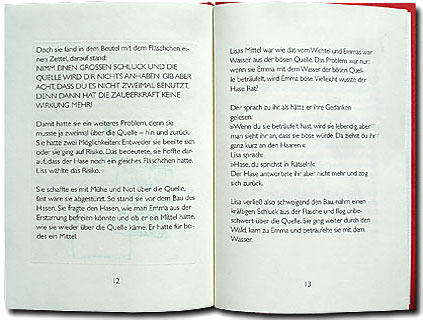 Doch sie fand in dem Beutel mit dem Fläschchen ei-
nen Zettel, darauf stand:
NIMM EINEN GROSSEN SCHLUCK UND DIE
QUELLE WIRD DIR NICHTS ANHABEN. GIB ABER
ACHT, DASS DU ES NICHT ZWEIMAL BENUTZT,
DENN DANN HAT DIE ZAUBERKRAFT KEINE
WIRKUNG MEHR!
Damit hatte sie ein weiteres Problem, denn sie
musste ja zweimal über die Quelle – hin und zurück.
Sie hatte zwei Möglichkeiten: Entweder sie beeilte sich
oder sie ging auf Risiko. Das bedeutete, sie hoffte dar-
auf, dass der Hase noch ein gleiches Fläschchen hatte.
Lisa wählte das Risiko.
Sie schaffte es mit Mühe und Not über die Quelle,
fast wäre sie abgestürzt. So stand sie vor dem Bau des
Hasen. Sie fragte den Hasen, wie man Emma aus der
Erstarrung befreien könnte und ob er ein Mittel hätte,
wie sie wieder über die Quelle käme. Er hatte für bei-
des ein Mittel.
12
Lisas Mittel war wie das vom Wichtel und Emmas war
Wasser aus der bösen Quelle. Das Problem war nur:
wenn sie Emma mit dem Wasser der bösen Quel-
le beträufelt, wird Emma böse. Vielleicht wusste der
Hase Rat?
Der sprach zu ihr als hätte er ihre Gedanken
gelesen:
»Wenn du sie beträufelt hast, wird sie lebendig aber
man sieht ihr an, dass sie böse würde. Da ziehst du ihr
ganz kurz an den Haaren.«
Lisa sprach:
»Hase, du sprichst in Rätseln!«
Der Hase antwortete ihr aber nicht mehr und zog
sich zurück.
Lisa verließ also schweigend den Bau, nahm einen
kräftigen Schluck aus der Flasche und flog unbe-
schwert über die Quelle. Sie ging weiter durch den
Wald, kam zu Emma und beträufelte sie mit dem
Wasser.
13